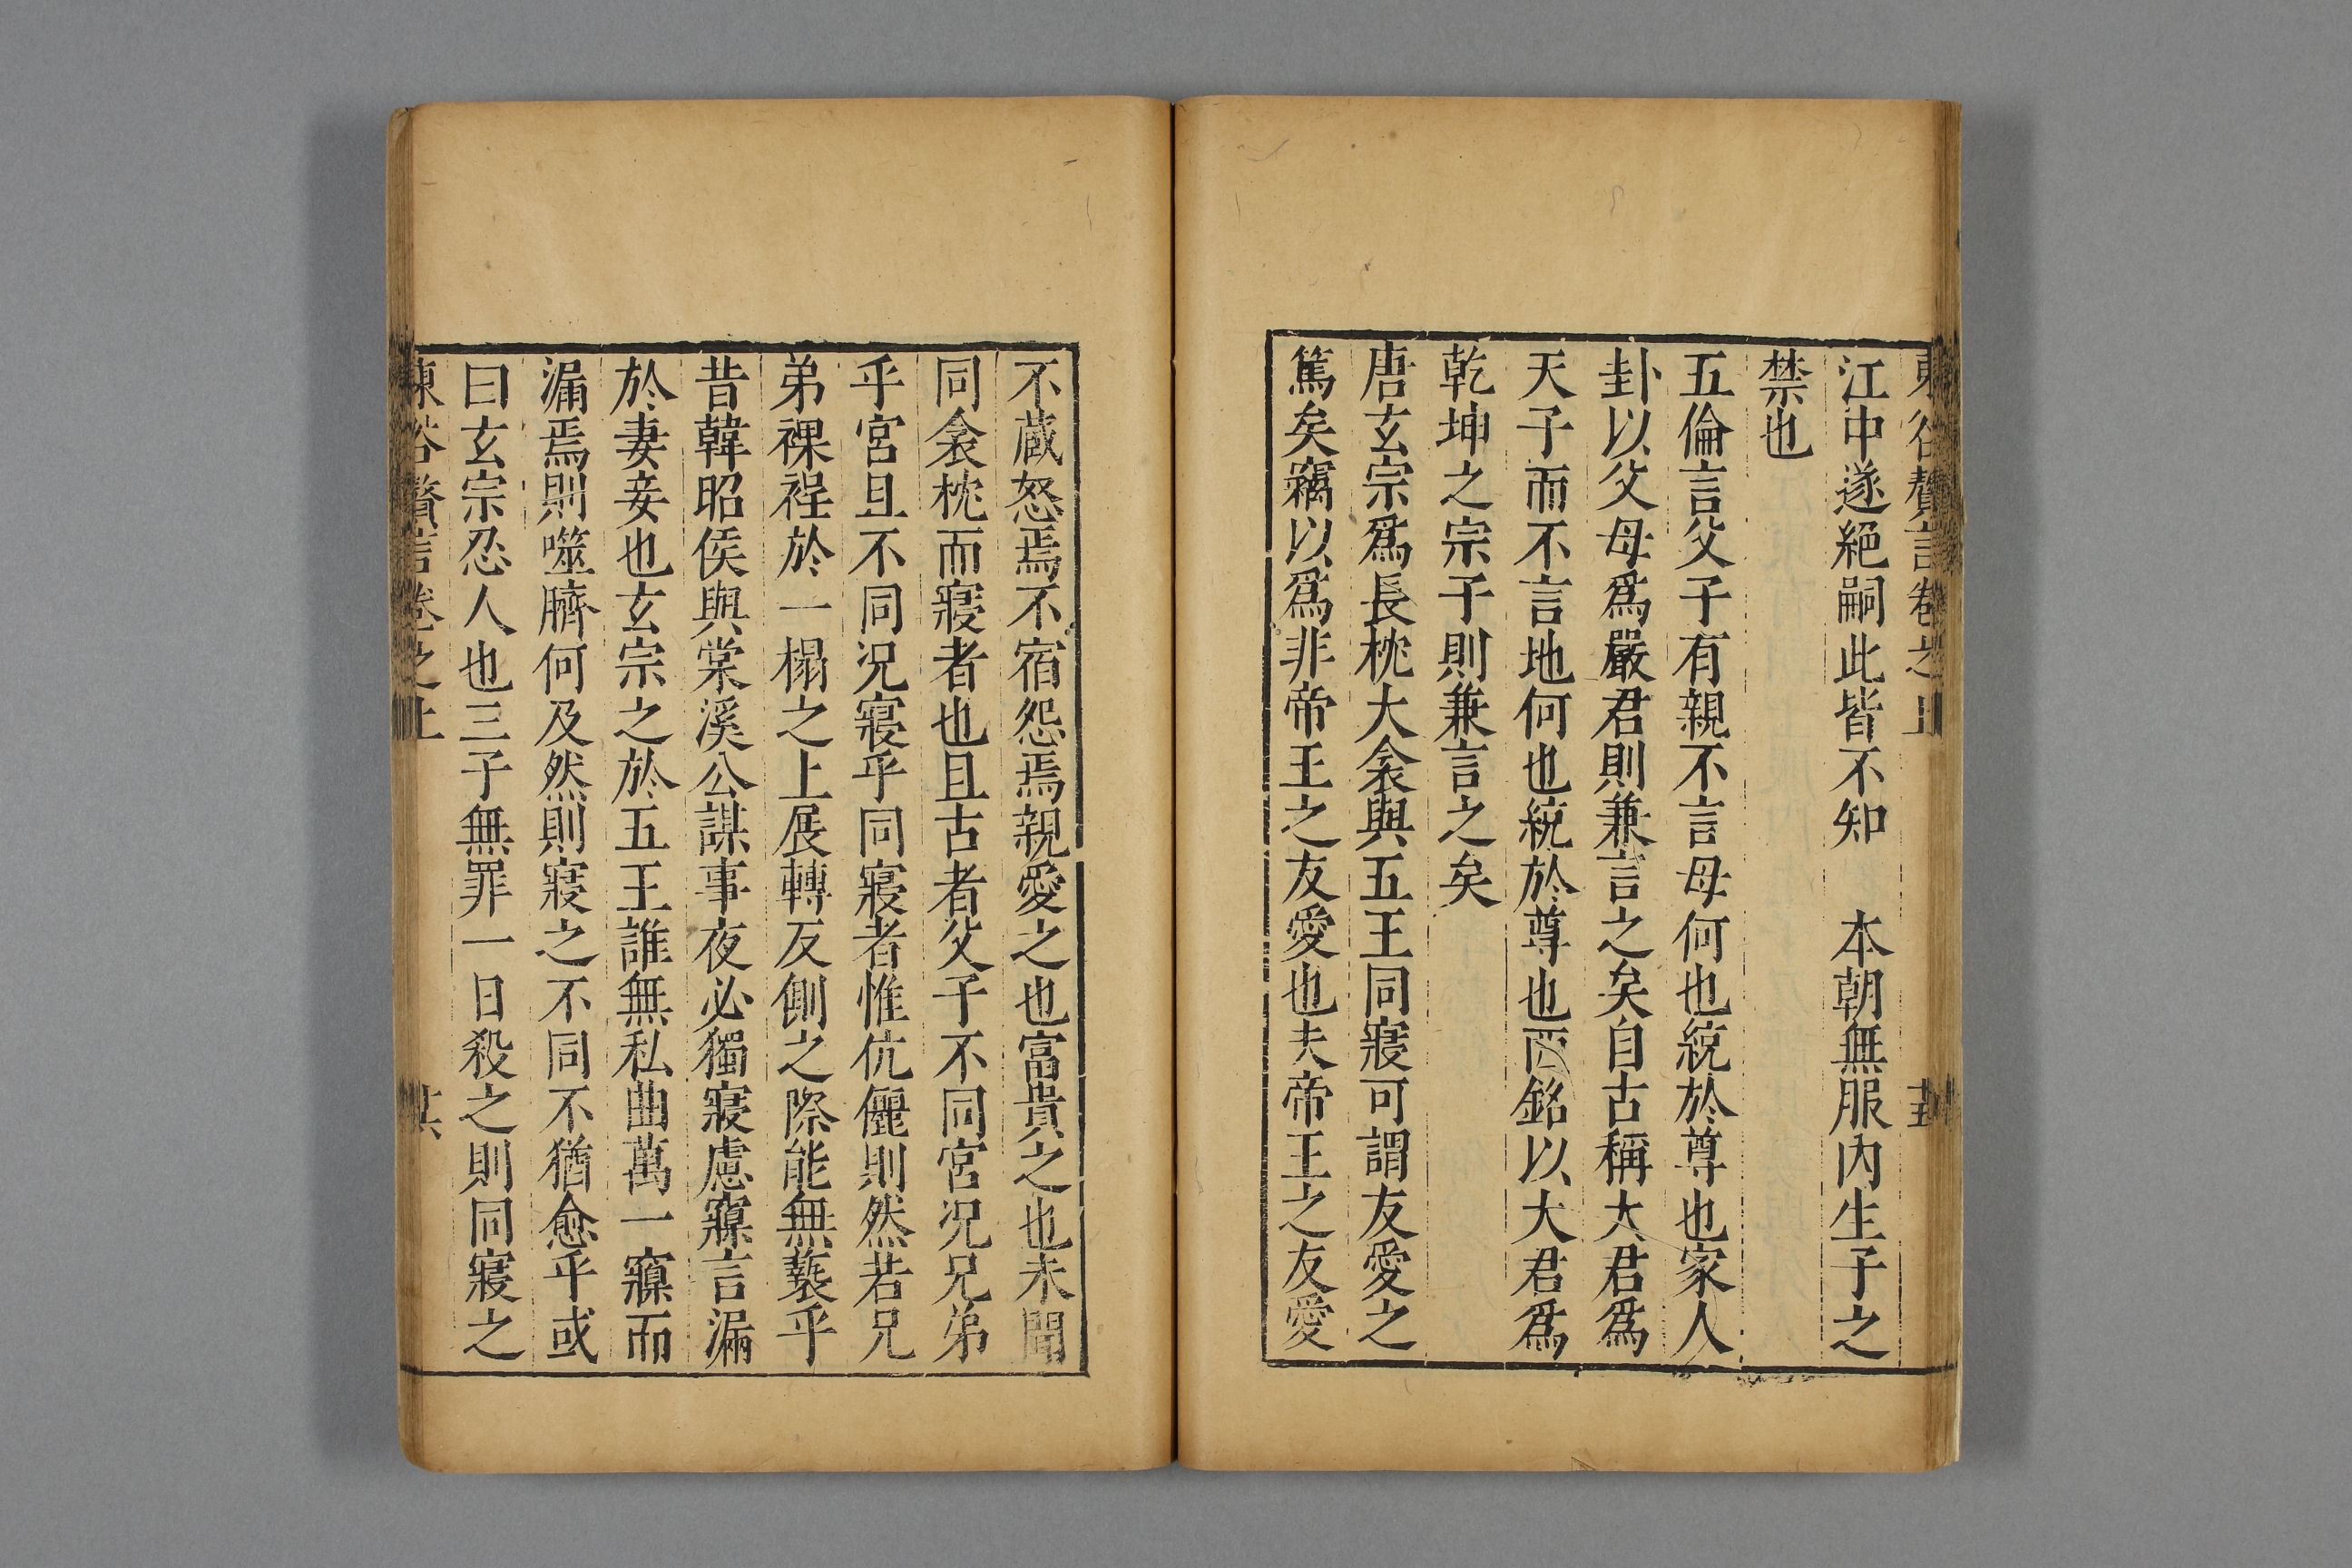 東谷贅言卷之上
十五
江中遂絕嗣此皆不知　本朝無服内生子之
禁也
五倫言父子有親不言母何也統於尊也家人
卦以父母爲嚴君則兼言之矣自古稱大君爲
天子而不言地何也統於尊也西銘以大君爲
乾坤之宗子則兼言之矣
唐玄宗爲長枕大衾與五王同寢可謂友愛之
篤矣竊以爲非帝王之友愛也夫帝王之友愛
不藏怒焉不宿怨焉親愛之也富貴之也未聞
同衾枕而寢者也且古者父子不同宮況兄弟
乎宮且不同況寢乎同寢者惟伉儷則然若兄
弟裸裎於一榻之上展轉反側之際能無䙝乎
昔韓昭侯與棠溪公謀事夜必獨寢慮寱言漏
於妻妾也玄宗之於五王誰無私曲萬一寱而
漏焉則噬臍何及然則寢之不同不猶愈乎或
曰玄宗忍人也三子無罪一日殺之則同寢之
東谷贅言卷之上
十六